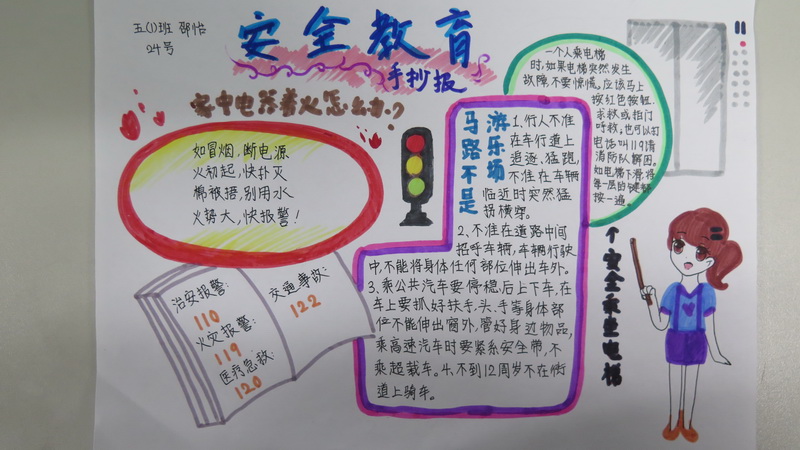 五(1)班 邵怡
24号
安全教育
手抄报
家中电器着火怎么办?
如冒烟,断电源
火初起,快扑灭
棉被捂,别用水
火势大,快报警!
治安报警:
110
火灾报警:
119
医疗急救:
120
交通事故:
122
马路不是
游乐场
1、行人不准
在车行道上
追逐、猛跑,
不准在车辆
临近时突然猛
拐横穿。
2、不准在道路中间
招呼车辆,车辆行驶
中,不能将身体任何部位伸出车外。
3、乘公共汽车要停稳后上下车,在
车上要抓好扶手,头、手等身体部
位不能伸出窗外,管好身边物品,
乘高速汽车时要紧系安全带,不
乘超载车。4、不到12周岁不在街
道上骑车。
一个人乘电梯
时,如果电梯突然发生
故障,不要惊慌。应该马上
按红色按钮.
求救或拍门
呼救,也可以打
电话叫119请
消防队解困。
如电梯下滑,将
每一层的键都
按一遍。
个安全乘坐电梯